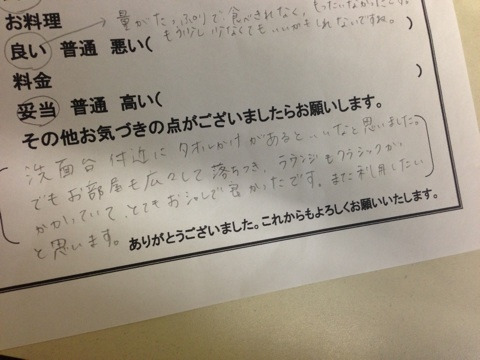 お料理
量がたっぷりで食べきれなく、もったいなかったです。
もう少し少なくてもいいかもしれないですね。
良い 普通 悪い( )
料金
妥当 普通 高い( )
その他お気づきの点がございましたらお願いします。
洗面台付近にタオルがけがあるといいなと思いました。
でもお部屋も広々して落ちつき、ラウンジもクラシックが
かかっていて、とてもおシャレで良かったです。また利用したい
と思います。
ありがとうございました。これからもよろしくお願いいたします。